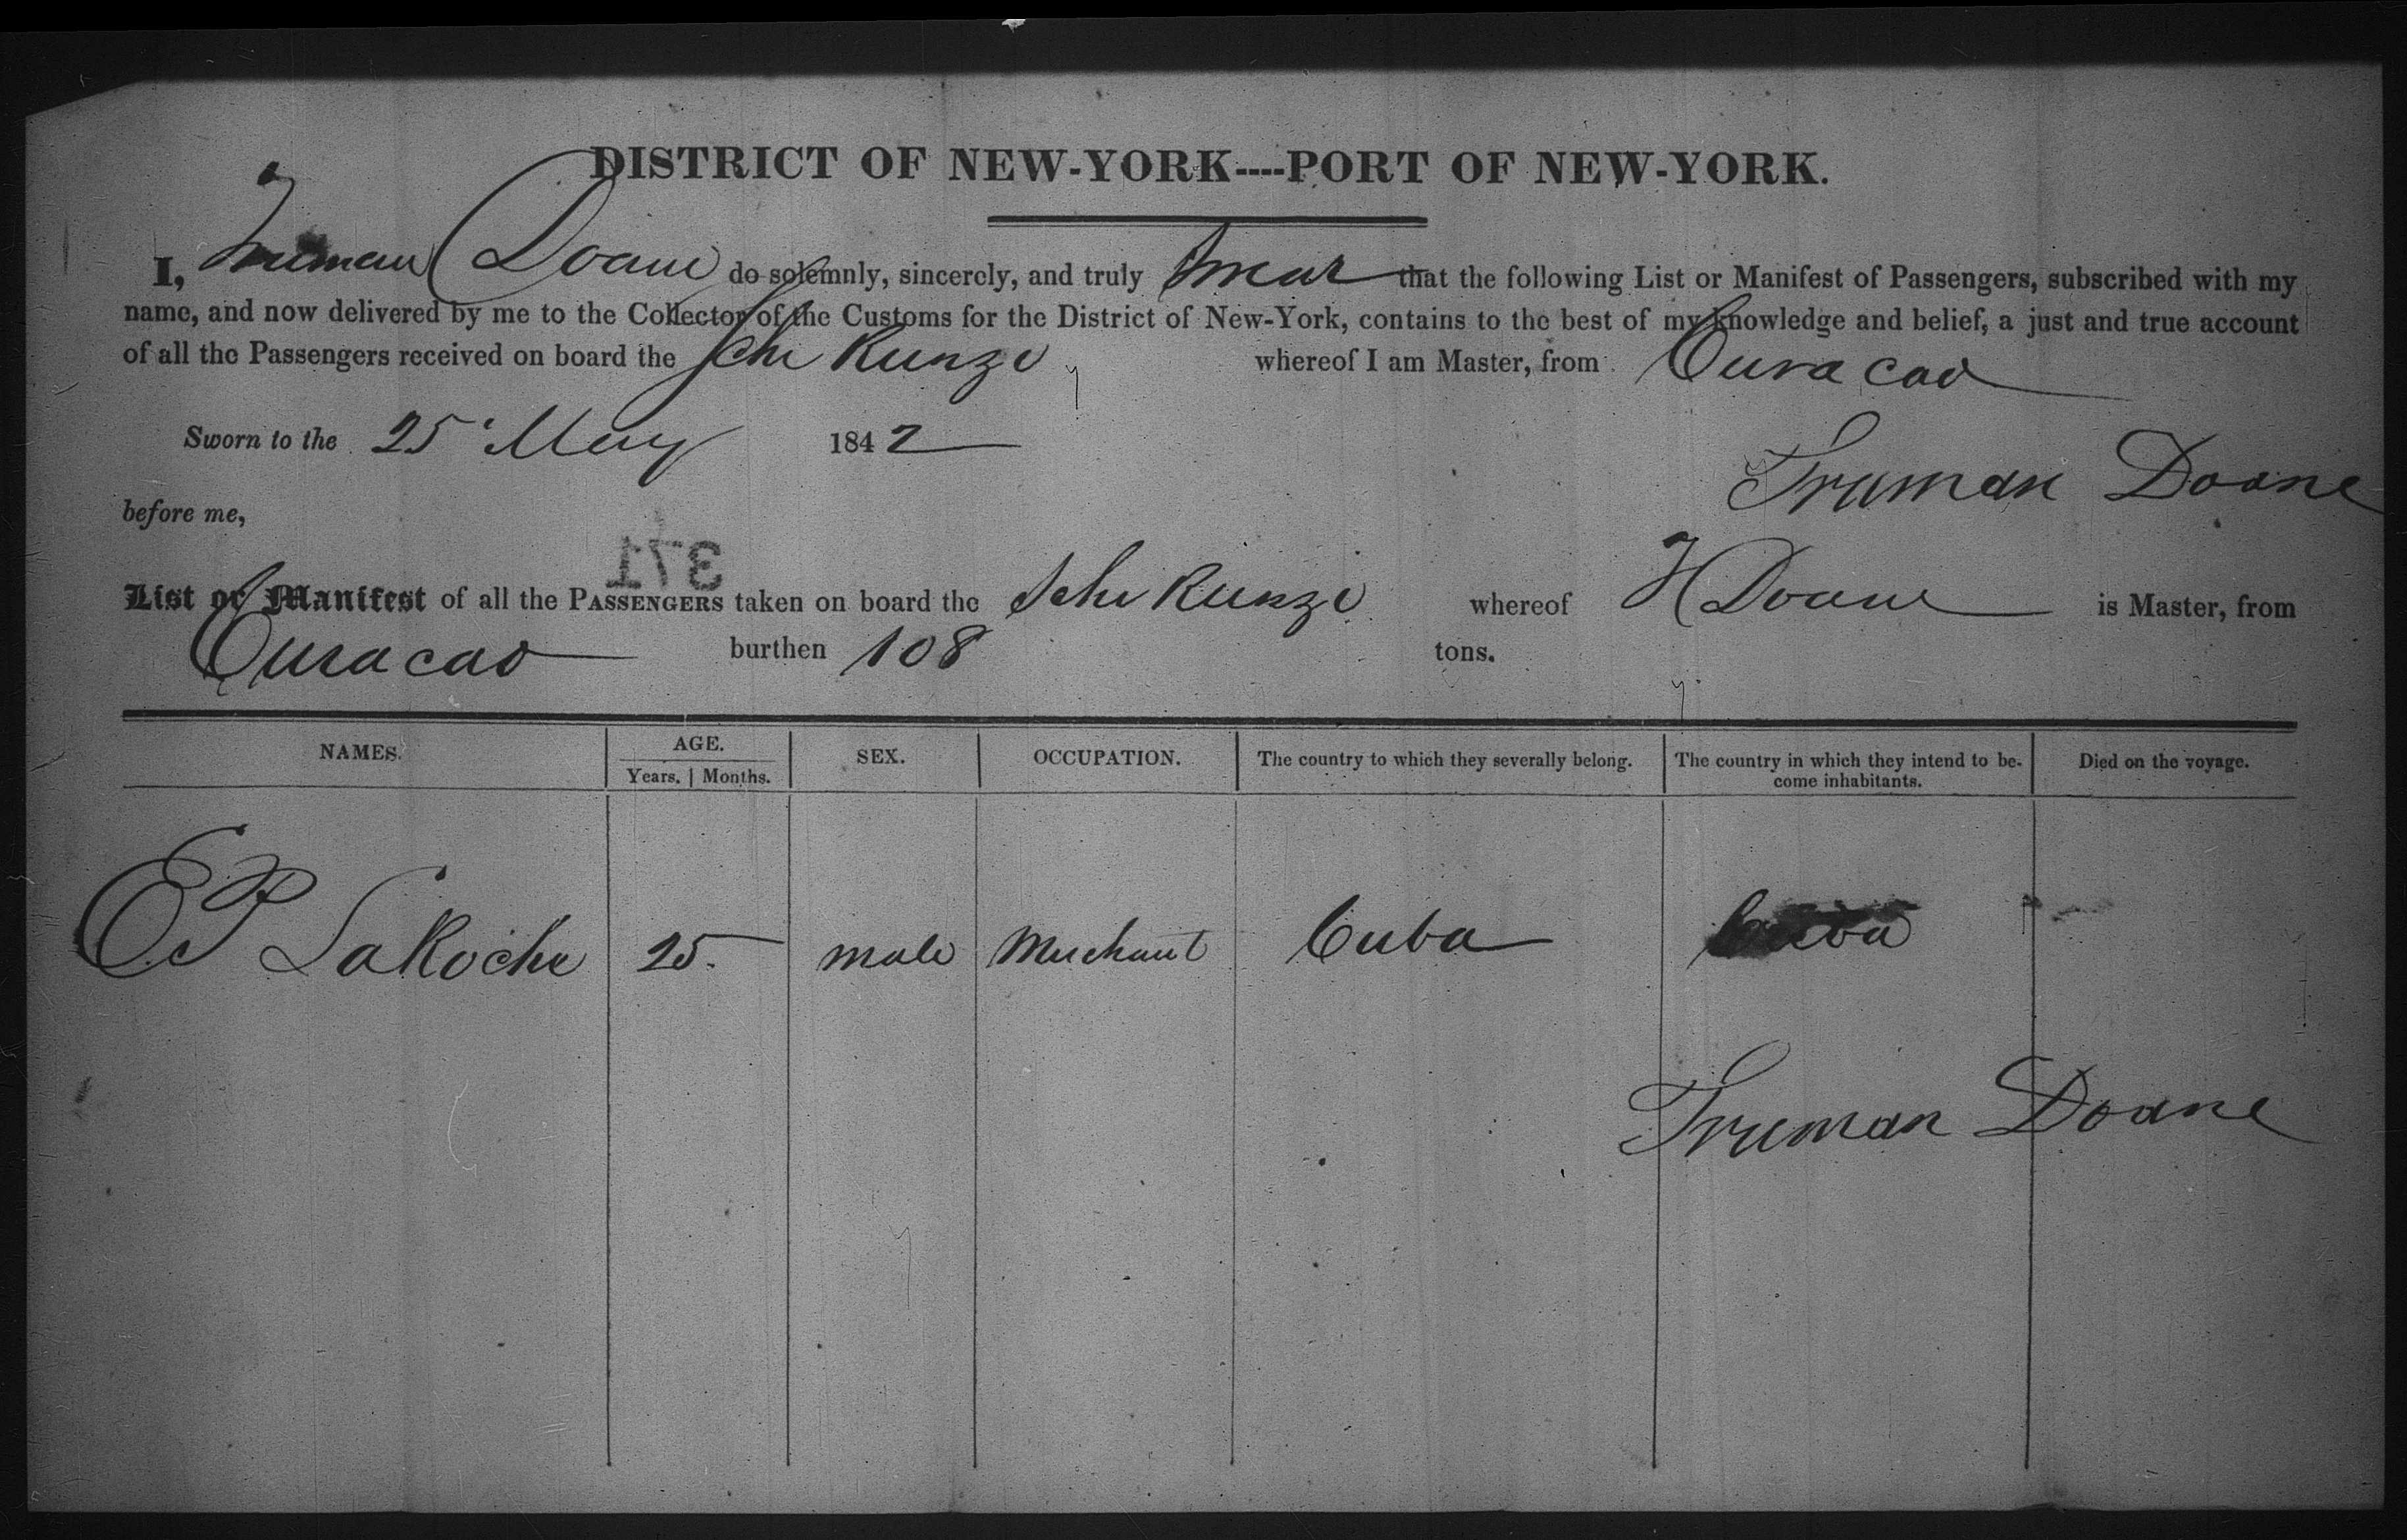 DISTRICT OF NEW-YORK----PORT OF NEW-YORK.
I, Truman Doane do solemnly, sincerely, and truly swear that the following List or Manifest of Passengers, subscribed with my
name, and now delivered by me to the Collector of the Customs for the District of New-York, contains to the best of my knowledge and belief, a just and true account
of all the Passengers received on board the Schr Kunze whereof I am Master, from Curacao
Sworn to the 25 May 1842
Truman Doane
before me,
371
List or Manifest of all the PASSENGERS taken on board the Schr Kunze whereof T Doane is Master, from
Curacao burthen 108 tons.
NAMES. AGE. SEX. OCCUPATION. The country to which they severally belong. The country in which they intend to be- Died on the voyage.
Years. | Months. come inhabitants.
EP LaRoche 25 male Merchant Cuba Cuba
Truman Doane